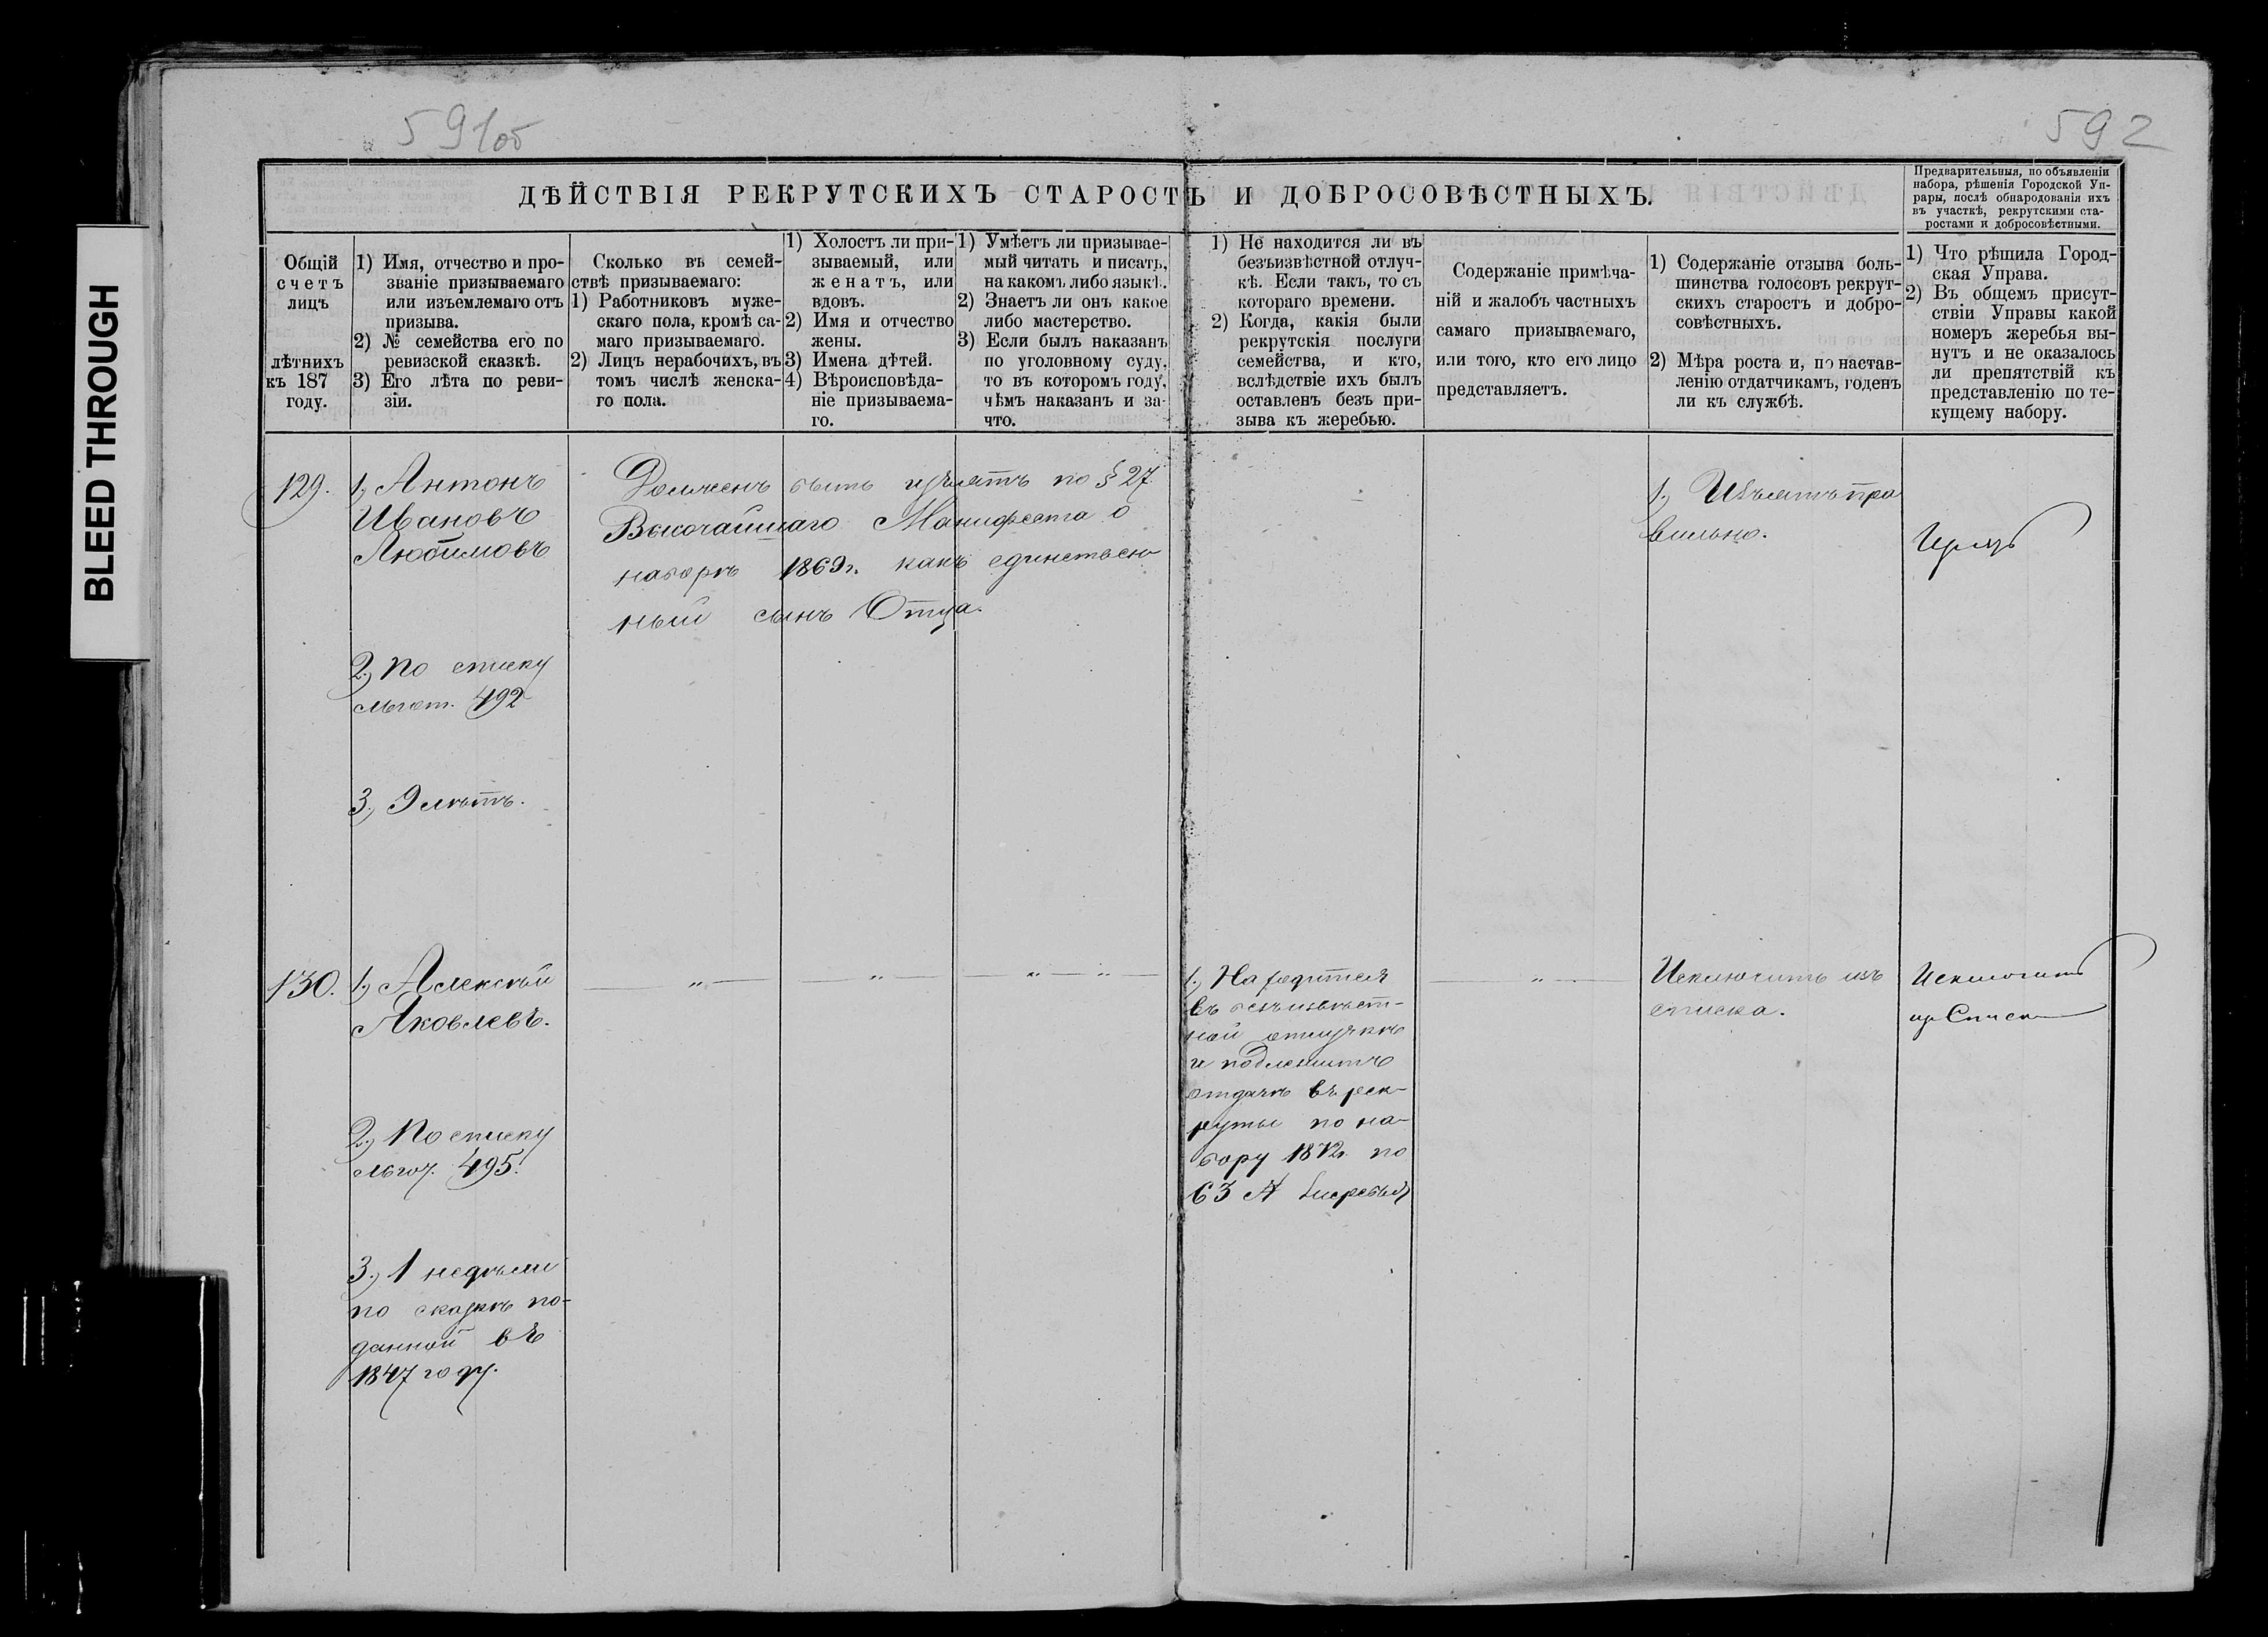 BLEED THROUGH
591об
592
ДѢЙСТВІЯ РЕКРУТСКИХЪ СТАРОСТЪ И ДОБРОСОВѢСТНЫХЪ.
Предварительныя, по объявленіи
набора, рѣшенія Городской Уп-
рары, послѣ обнародованія ихъ
въ участкѣ, рекрутскими ста-
ростами и добросовѣстными.
Общій
счетъ
лицъ
лѣтнихъ
къ 187
году.
1) Имя, отчество и про-
званіе призываемаго
или изъемлемаго отъ
призыва.
2) № семейства его по
ревизской сказкѣ.
3) Его лѣта по реви-
зіи.
Сколько въ семей-
ствѣ призываемаго:
1) Работниковъ муже-
скаго пола, кромѣ са-
маго призываемаго.
2) Лицъ нерабочихъ, въ
томъ числѣ женска-
го пола.
1) Холостъ ли при-
зываемый, или
женатъ, или
вдовъ.
2) Имя и отчество
жены.
3) Имена дѣтей.
4) Вѣроисповѣда-
ніе призываема-
го.
1) Умѣетъ ли призывае-
мый читать и писать,
на какомъ либо языкѣ.
2) Знаетъ ли онъ какое
либо мастерство.
3) Если былъ наказанъ
по уголовному суду,
то въ которомъ году,
чѣмъ наказанъ и за-
что.
1) Не находится ли въ
безъизвѣстной отлуч-
кѣ. Если такъ, то съ
котораго времени.
2) Когда, какія были
рекрутскія послуги
семейства, и кто,
вслѣдствіе ихъ былъ
оставленъ безъ при-
зыва къ жеребью.
Содержаніе примѣча-
ній и жалобъ частныхъ
самаго призываемаго,
или того, кто его лицо
представляетъ.
1) Содержаніе отзыва боль-
шинства голосовъ рекрут-
скихъ старостъ и добро-
совѣстныхъ.
2) Мѣра роста и, по настав-
ленію отдатчикамъ, годенъ
ли къ службѣ.
1) Что рѣшила Город-
ская Управа.
2) Въ общемъ присут-
ствіи Управы какой
номеръ жеребья вы-
нутъ и не оказалось
ли препятствій къ
представленію по те-
кущему набору.
129.
1.) Антонъ
Ивановъ
Любимовъ
2.) По списку
льгот. 492
3.) 9 лѣтъ.
Долженъ быть изъятъ по § 27
Высочайшаго Манифеста о
наборѣ 1869 г. какъ единствен-
ный сынъ Отца.
1.) Изъятъ пра
вильно.
130.
1.) Алексѣй
Яковлевъ.
2.) По списку
льгот. 495.
3.) 1 недѣли
по сказкѣ по-
данной въ
1847 году.
1.) Находится
въ безъизвѣст-
ной отлучкѣ
и подлежитъ
отдачѣ въ рек-
руты по на-
бору 1872 г. по
63 № жеребья
Исключить изъ
списка.
Исключить
из Списка